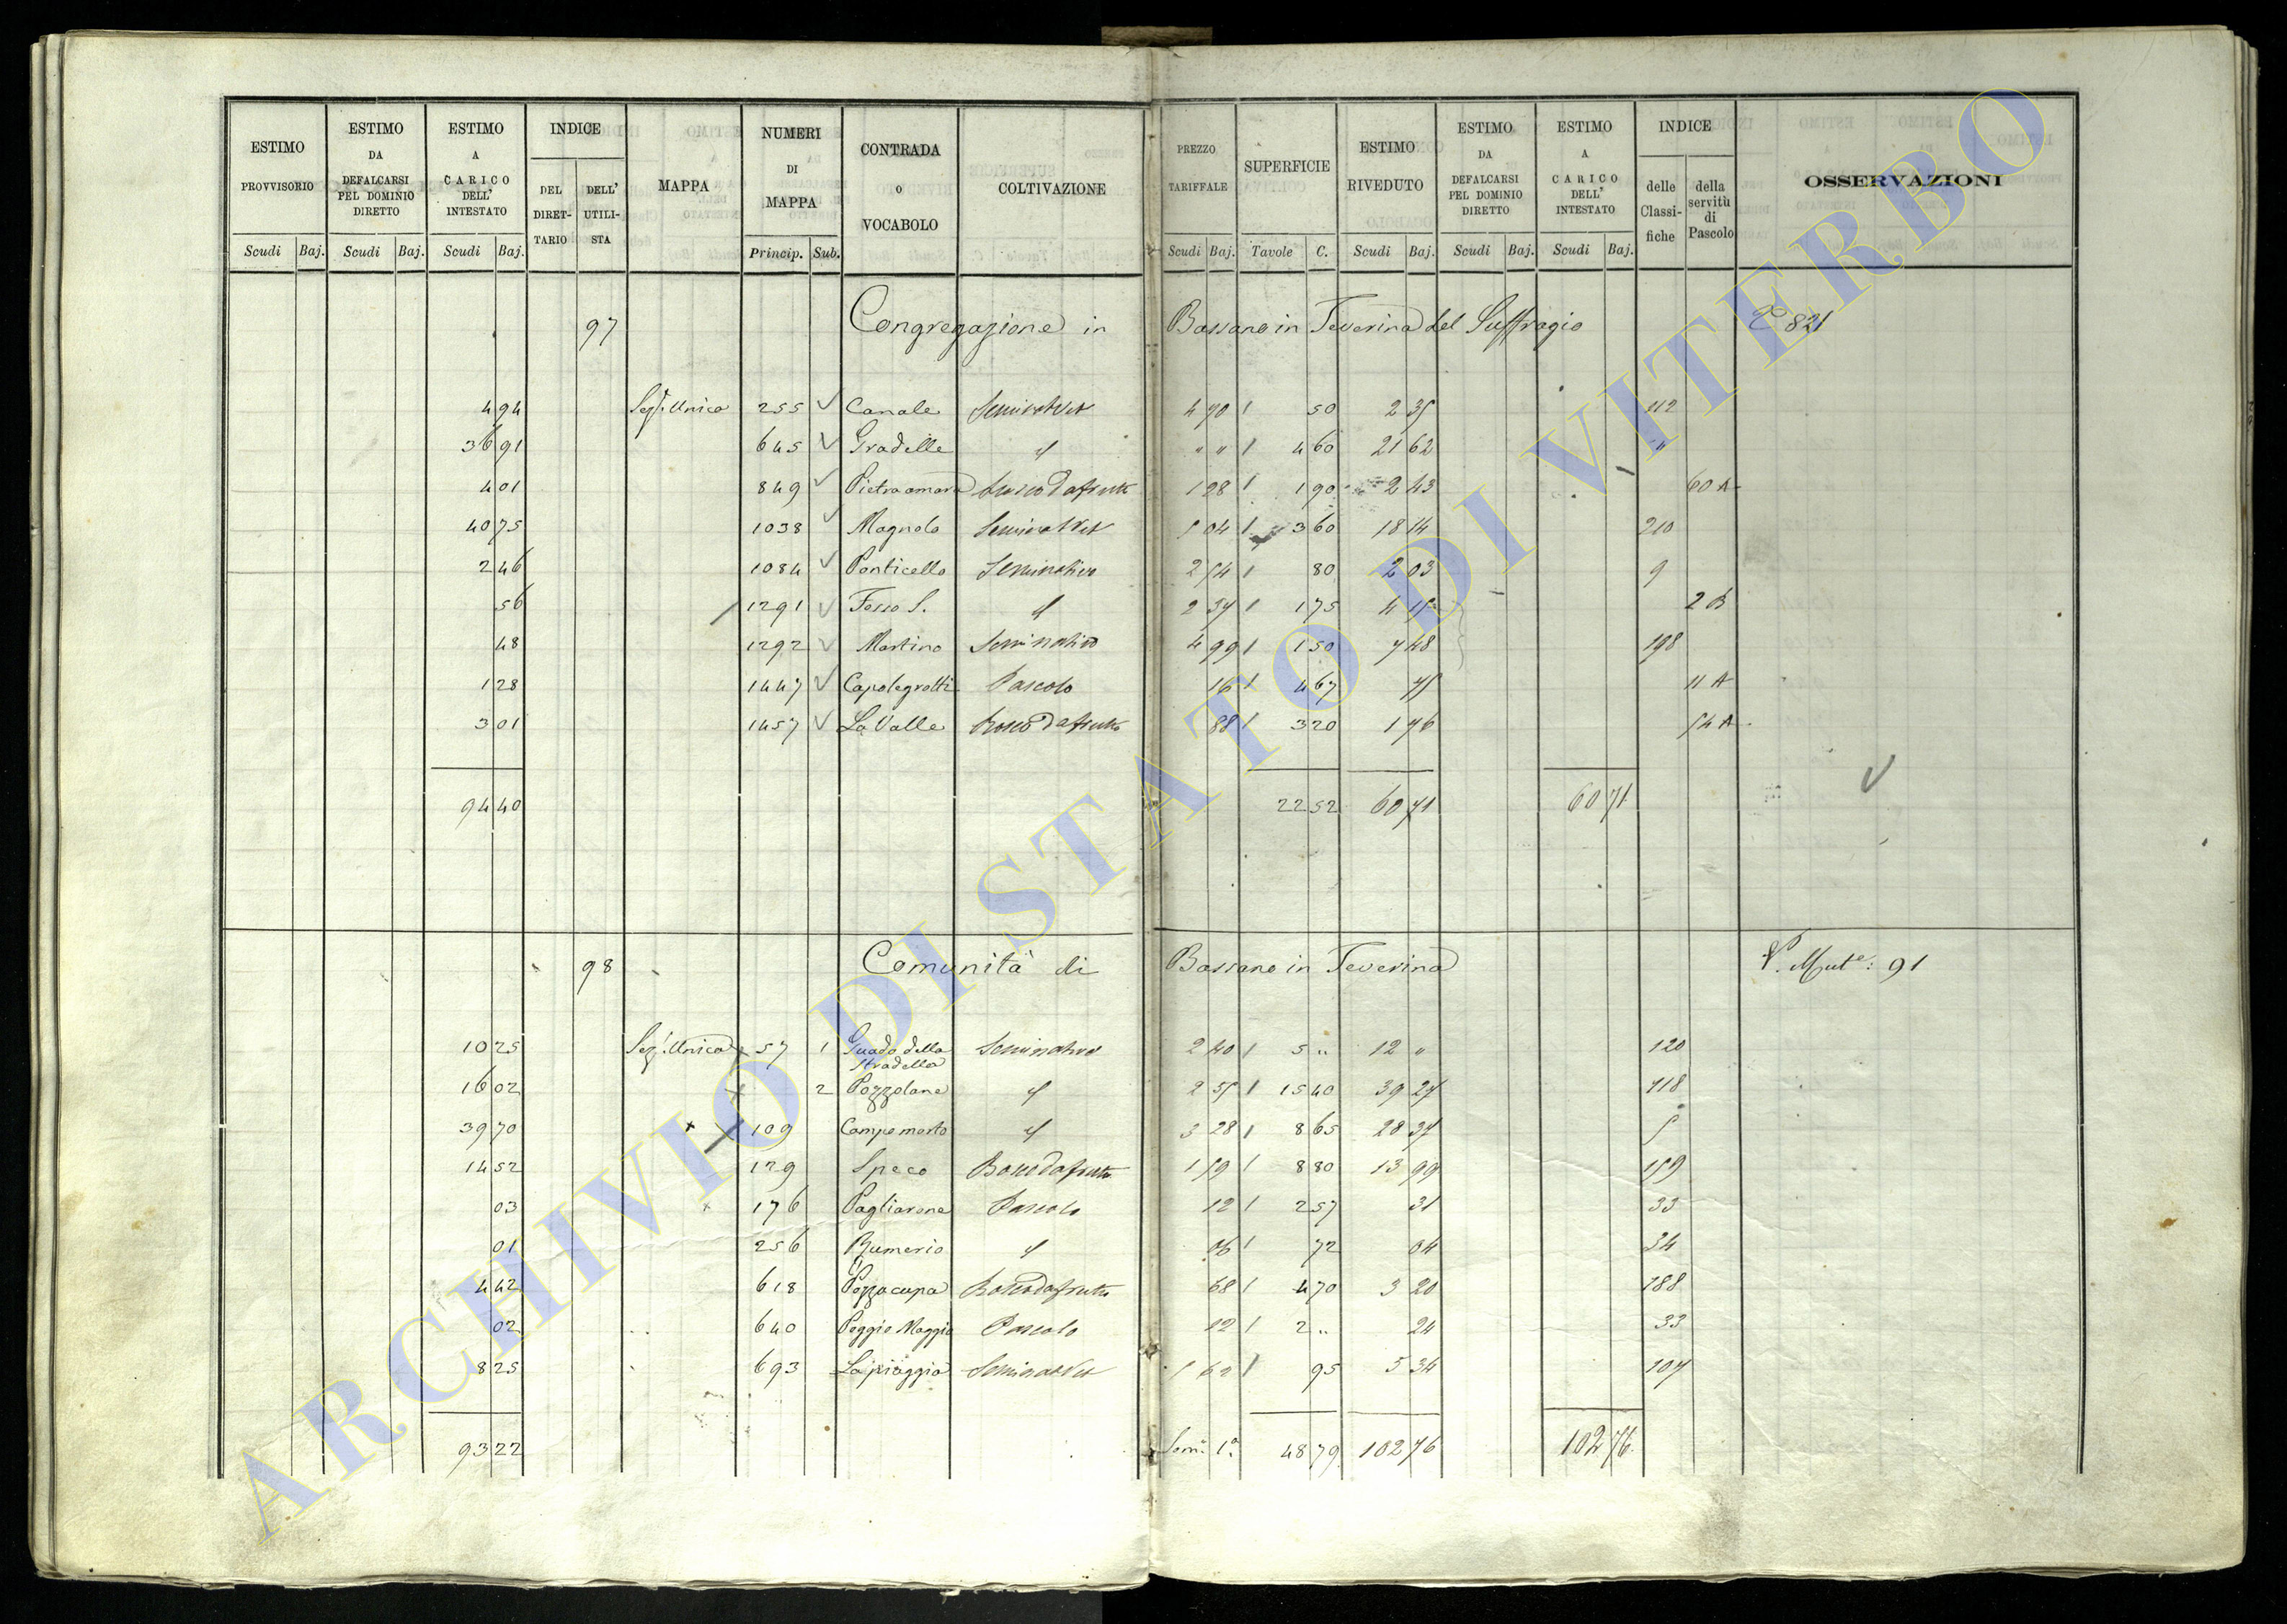 ESTIMO PROVVISORIO | ESTIMO DA DEFALCARSI PEL DOMINIO DIRETTO | ESTIMO A CARICO DELL' INTESTATO | INDICE DEL DIRET-TARIO | DELL' UTILI-STA | MAPPA | NUMERI DI MAPPA | CONTRADA O VOCABOLO | COLTIVAZIONE | PREZZO TARIFFALE | SUPERFICIE | ESTIMO RIVEDUTO | ESTIMO DA DEFALCARSI PEL DOMINIO DIRETTO | ESTIMO A CARICO DELL' INTESTATO | INDICE delle Classi-fiche | della servitù di Pascolo | OSSERVAZIONI
Scudi Baj. | Scudi Baj. | Scudi Baj. | Princip. Sub. | Scudi Baj. | Tavole C. | Scudi Baj. | Scudi Baj. | Scudi Baj.
97 Congregazione in Bassano in Teverina del Suffragio 821
4 94 Sez. Unica 255 Canale Seminat Vit 4 70 50 2 35 112
36 91 645 Gradelle " " " 4 60 21 62 "
4 01 849 Pietra amara Bosco da frutto 1 28 1 90 2 43 60 A
40 75 1038 Magnolo Seminat Vit 5 04 3 60 18 14 210
2 46 1084 Ponticello Seminativo 2 54 80 2 03 9
56 1291 Fosso S. " 2 37 1 75 4 15 2 B
48 1292 Martino Seminativo 4 99 1 50 7 48 198
1 28 1447 Capolegrotti Pascolo 16 4 67 75 11 A
3 01 1457 La Valle Bosco da frutto 88 3 20 1 76 54 A
94 40 22 52 60 71 60 71
98 Comunità di Bassano in Teverina V. Mut.e: 91
10 25 Sez. Unica 57 1 Guado della Stradella Seminativo 2 40 5 " 12 " 120
16 02 2 Pozzolane " 2 55 15 40 39 27 118
39 70 109 Campo morto " 3 28 8 65 28 37 5
14 52 129 Speco Bosco da frutto 1 59 8 80 13 99 159
03 176 Pagliarone Pascolo 12 2 57 31 33
01 256 Rumerio " 06 72 04 34
4 42 618 Pozzacupa Bosco da frutto 68 4 70 3 20 188
02 640 Poggio Maggio Pascolo 12 2 " 24 33
8 25 693 La piaggia Seminat Vit 5 62 95 5 34 107
93 22 Som. 1a 48 79 102 76 102 76
ARCHIVIO DI STATO DI VITERBO